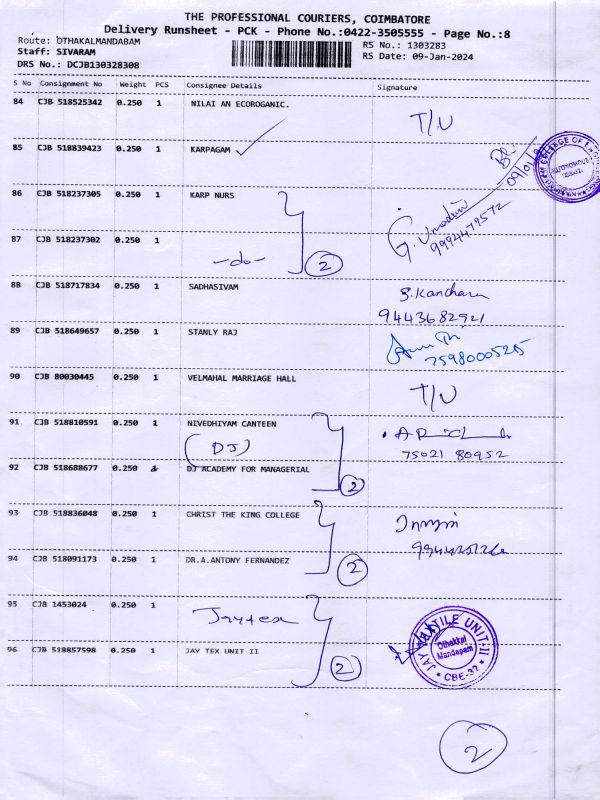 THE PROFESSIONAL COURIERS, COIMBATORE
Delivery Runsheet - PCK - Phone No.:0422-3505555 - Page No.:8
Route: OTHAKALMANDABAM
Staff: SIVARAM
DRS No.: DCJB130328308
RS No.: 1303283
RS Date: 09-Jan-2024
S No Consignment No Weight PCS Consignee Details Signature
84 CJB 518525342 0.250 1 NILAI AN ECOROGANIC. T/U
85 CJB 518839423 0.250 1 KARPAGAM
09/01/
AUTONOMOUS
86 CJB 518237305 0.250 1 KARP NURS
9994479572
87 CJB 518237302 0.250 1 -do- 2
88 CJB 518717834 0.250 1 SADHASIVAM S.Kanchana
9443682921
89 CJB 518649657 0.250 1 STANLY RAJ
7598000525
90 CJB 80030445 0.250 1 VELMAHAL MARRIAGE HALL T/U
91 CJB 518810591 0.250 1 NIVEDHIYAM CANTEEN
(DJ) 75021 80952
92 CJB 518688677 0.250 DJ ACADEMY FOR MANAGERIAL 2
93 CJB 518836048 0.250 1 CHRIST THE KING COLLEGE
94 CJB 518091173 0.250 1 DR.A.ANTONY FERNANDEZ 2
95 CJB 1453024 0.250 1 Jaytex
96 CJB 518857598 0.250 1 JAY TEX UNIT II 2
Othakkal
Mandapam
CBE-32
2